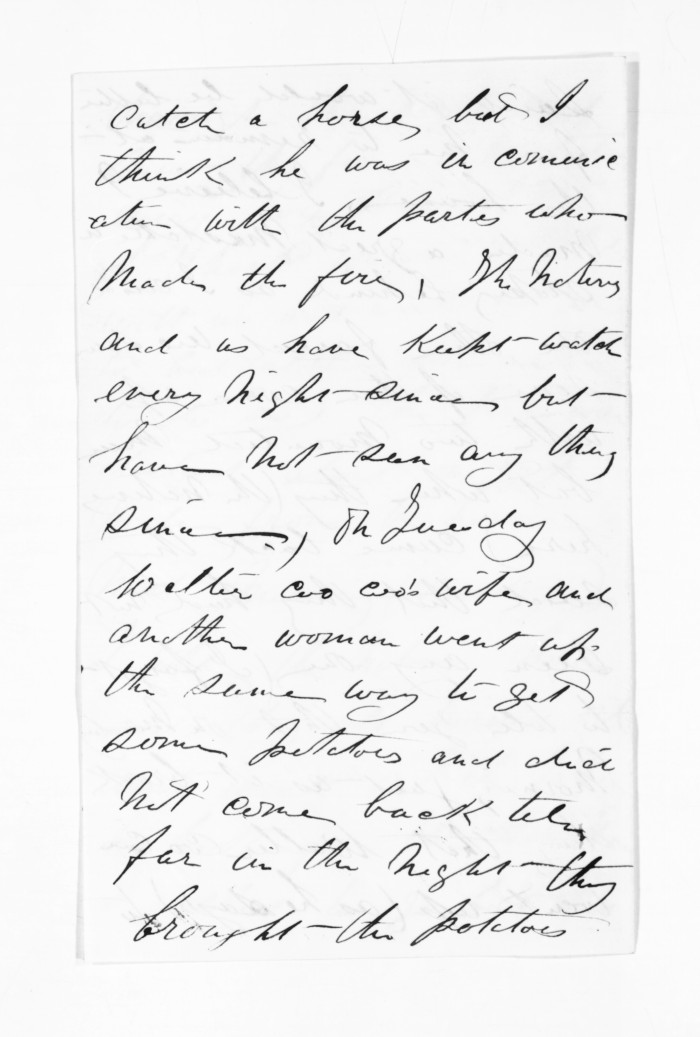 catch a horse, but I
think he was in comunic
ation with the parties who
Made the fires, The Natives
and us have Kept watch
every Night since, but
have Not seen any thing
since, On Tuesday
Walter coo coo's wife and
another woman went up
the same way to get
some potatoes and did
Not come back tele
far in the Night they
brought the potatoes